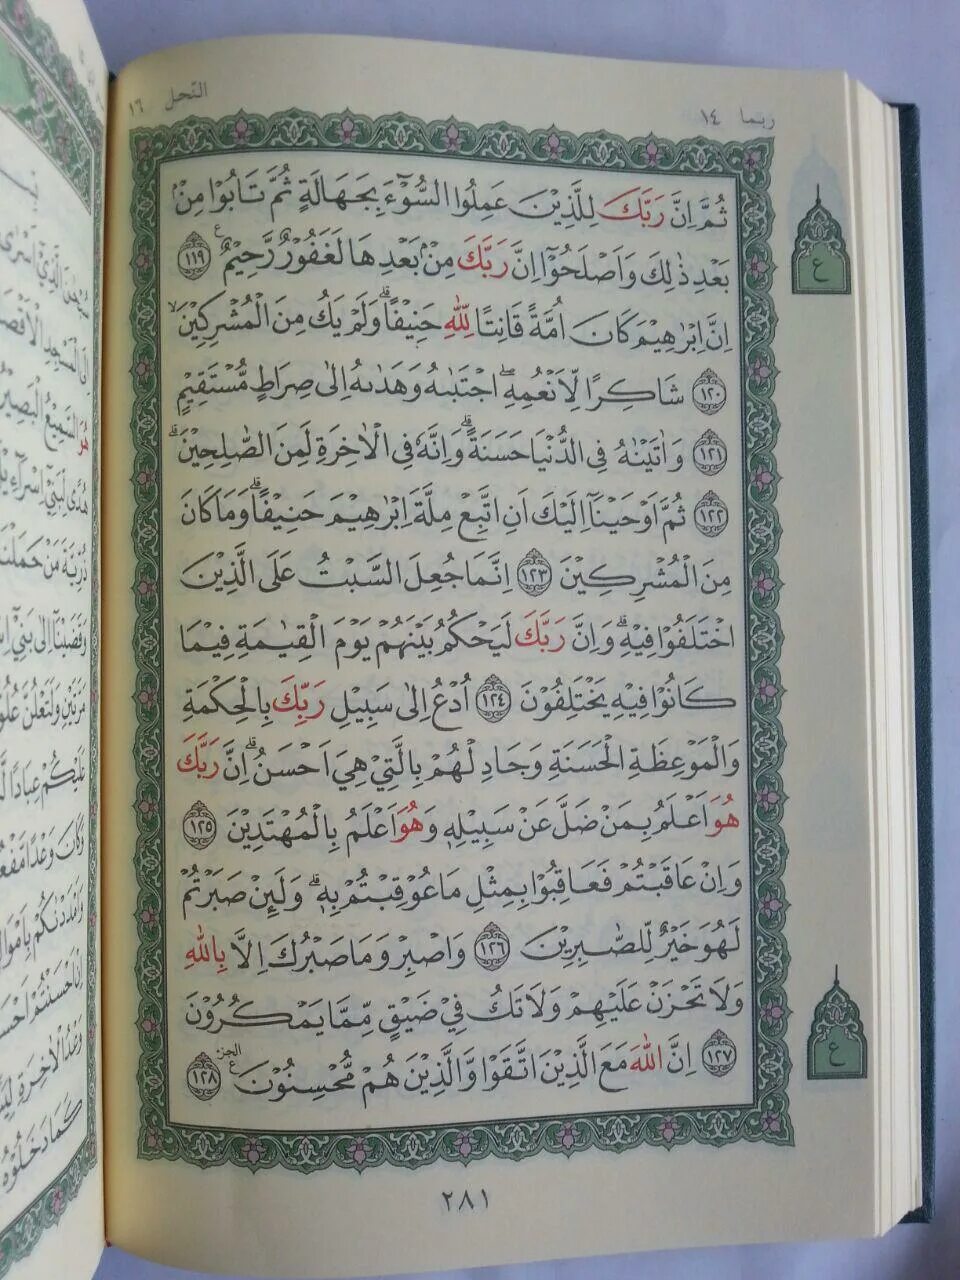 ربما ١٤
النّحل ١٦
ثُمَّ اِنَّ رَبَّكَ لِلَّذِيْنَ عَمِلُوا السُّوْۤءَ بِجَهَالَةٍ ثُمَّ تَابُوْا مِنْۢ
بَعْدِ ذٰلِكَ وَاَصْلَحُوْٓا اِنَّ رَبَّكَ مِنْۢ بَعْدِهَا لَغَفُوْرٌ رَّحِيْمٌ ࣖ ١١٩
اِنَّ اِبْرٰهِيْمَ كَانَ اُمَّةً قَانِتًا لِلّٰهِ حَنِيْفًاۗ وَلَمْ يَكُ مِنَ الْمُشْرِكِيْنَۙ
١٢٠ شَاكِرًا لِّاَنْعُمِهٖ ۖاجْتَبٰىهُ وَهَدٰىهُ اِلٰى صِرَاطٍ مُّسْتَقِيْمٍ
١٢١ وَاٰتَيْنٰهُ فِى الدُّنْيَا حَسَنَةً ۗوَاِنَّهٗ فِى الْاٰخِرَةِ لَمِنَ الصّٰلِحِيْنَ ۗ
١٢٢ ثُمَّ اَوْحَيْنَآ اِلَيْكَ اَنِ اتَّبِعْ مِلَّةَ اِبْرٰهِيْمَ حَنِيْفًا ۗوَمَا كَانَ
مِنَ الْمُشْرِكِيْنَ ١٢٣ اِنَّمَا جُعِلَ السَّبْتُ عَلَى الَّذِيْنَ
اخْتَلَفُوْا فِيْهِۗ وَاِنَّ رَبَّكَ لَيَحْكُمُ بَيْنَهُمْ يَوْمَ الْقِيٰمَةِ فِيْمَا
كَانُوْا فِيْهِ يَخْتَلِفُوْنَ ١٢٤ اُدْعُ اِلٰى سَبِيْلِ رَبِّكَ بِالْحِكْمَةِ
وَالْمَوْعِظَةِ الْحَسَنَةِ وَجَادِلْهُمْ بِالَّتِيْ هِيَ اَحْسَنُۗ اِنَّ رَبَّكَ
هُوَ اَعْلَمُ بِمَنْ ضَلَّ عَنْ سَبِيْلِهٖ وَهُوَ اَعْلَمُ بِالْمُهْتَدِيْنَ ١٢٥
وَاِنْ عَاقَبْتُمْ فَعَاقِبُوْا بِمِثْلِ مَا عُوْقِبْتُمْ بِهٖۗ وَلَىِٕنْ صَبَرْتُمْ
لَهُوَ خَيْرٌ لِّلصّٰبِرِيْنَ ١٢٦ وَاصْبِرْ وَمَا صَبْرُكَ اِلَّا بِاللّٰهِ
وَلَا تَحْزَنْ عَلَيْهِمْ وَلَا تَكُ فِيْ ضَيْقٍ مِّمَّا يَمْكُرُوْنَ
١٢٧ اِنَّ اللّٰهَ مَعَ الَّذِيْنَ اتَّقَوْا وَّالَّذِيْنَ هُمْ مُّحْسِنُوْنَ ࣖ الجزء ١٢٨
ع
ع
٢٨١